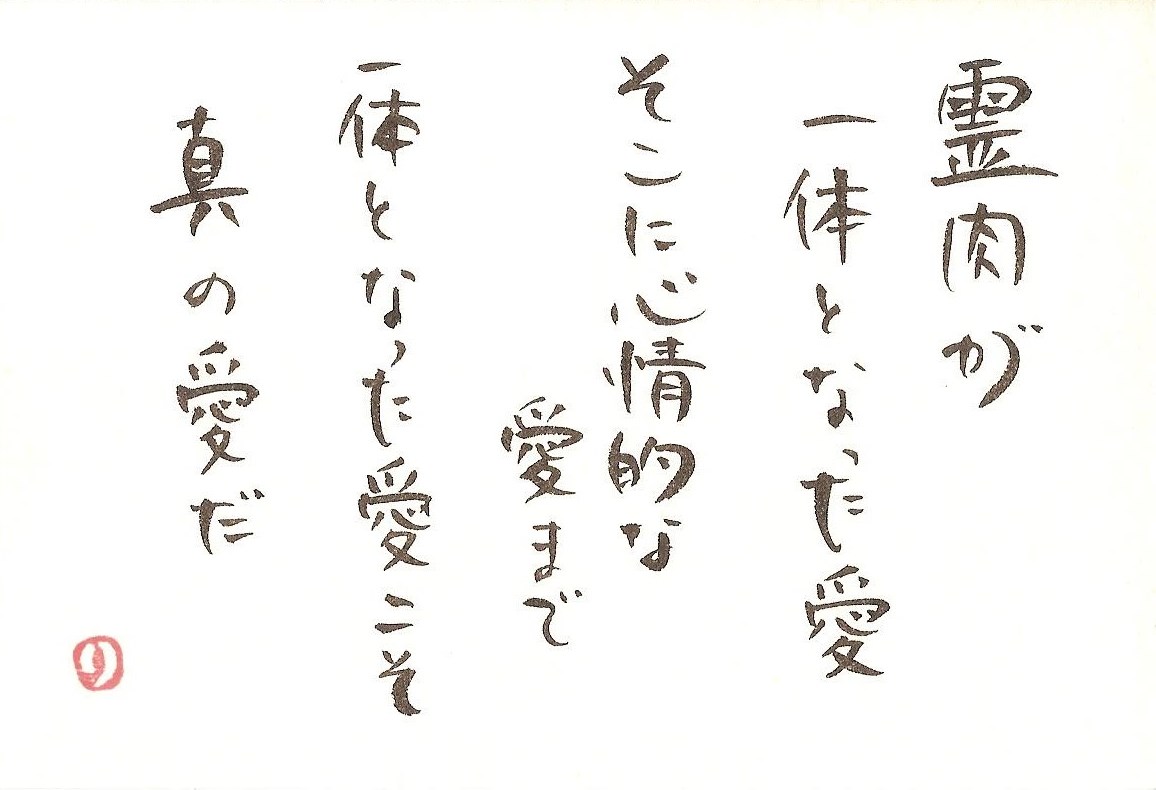 霊肉が
一体となった愛
そこに心情的な
愛まで
一体となった愛こそ
真の愛だ
の